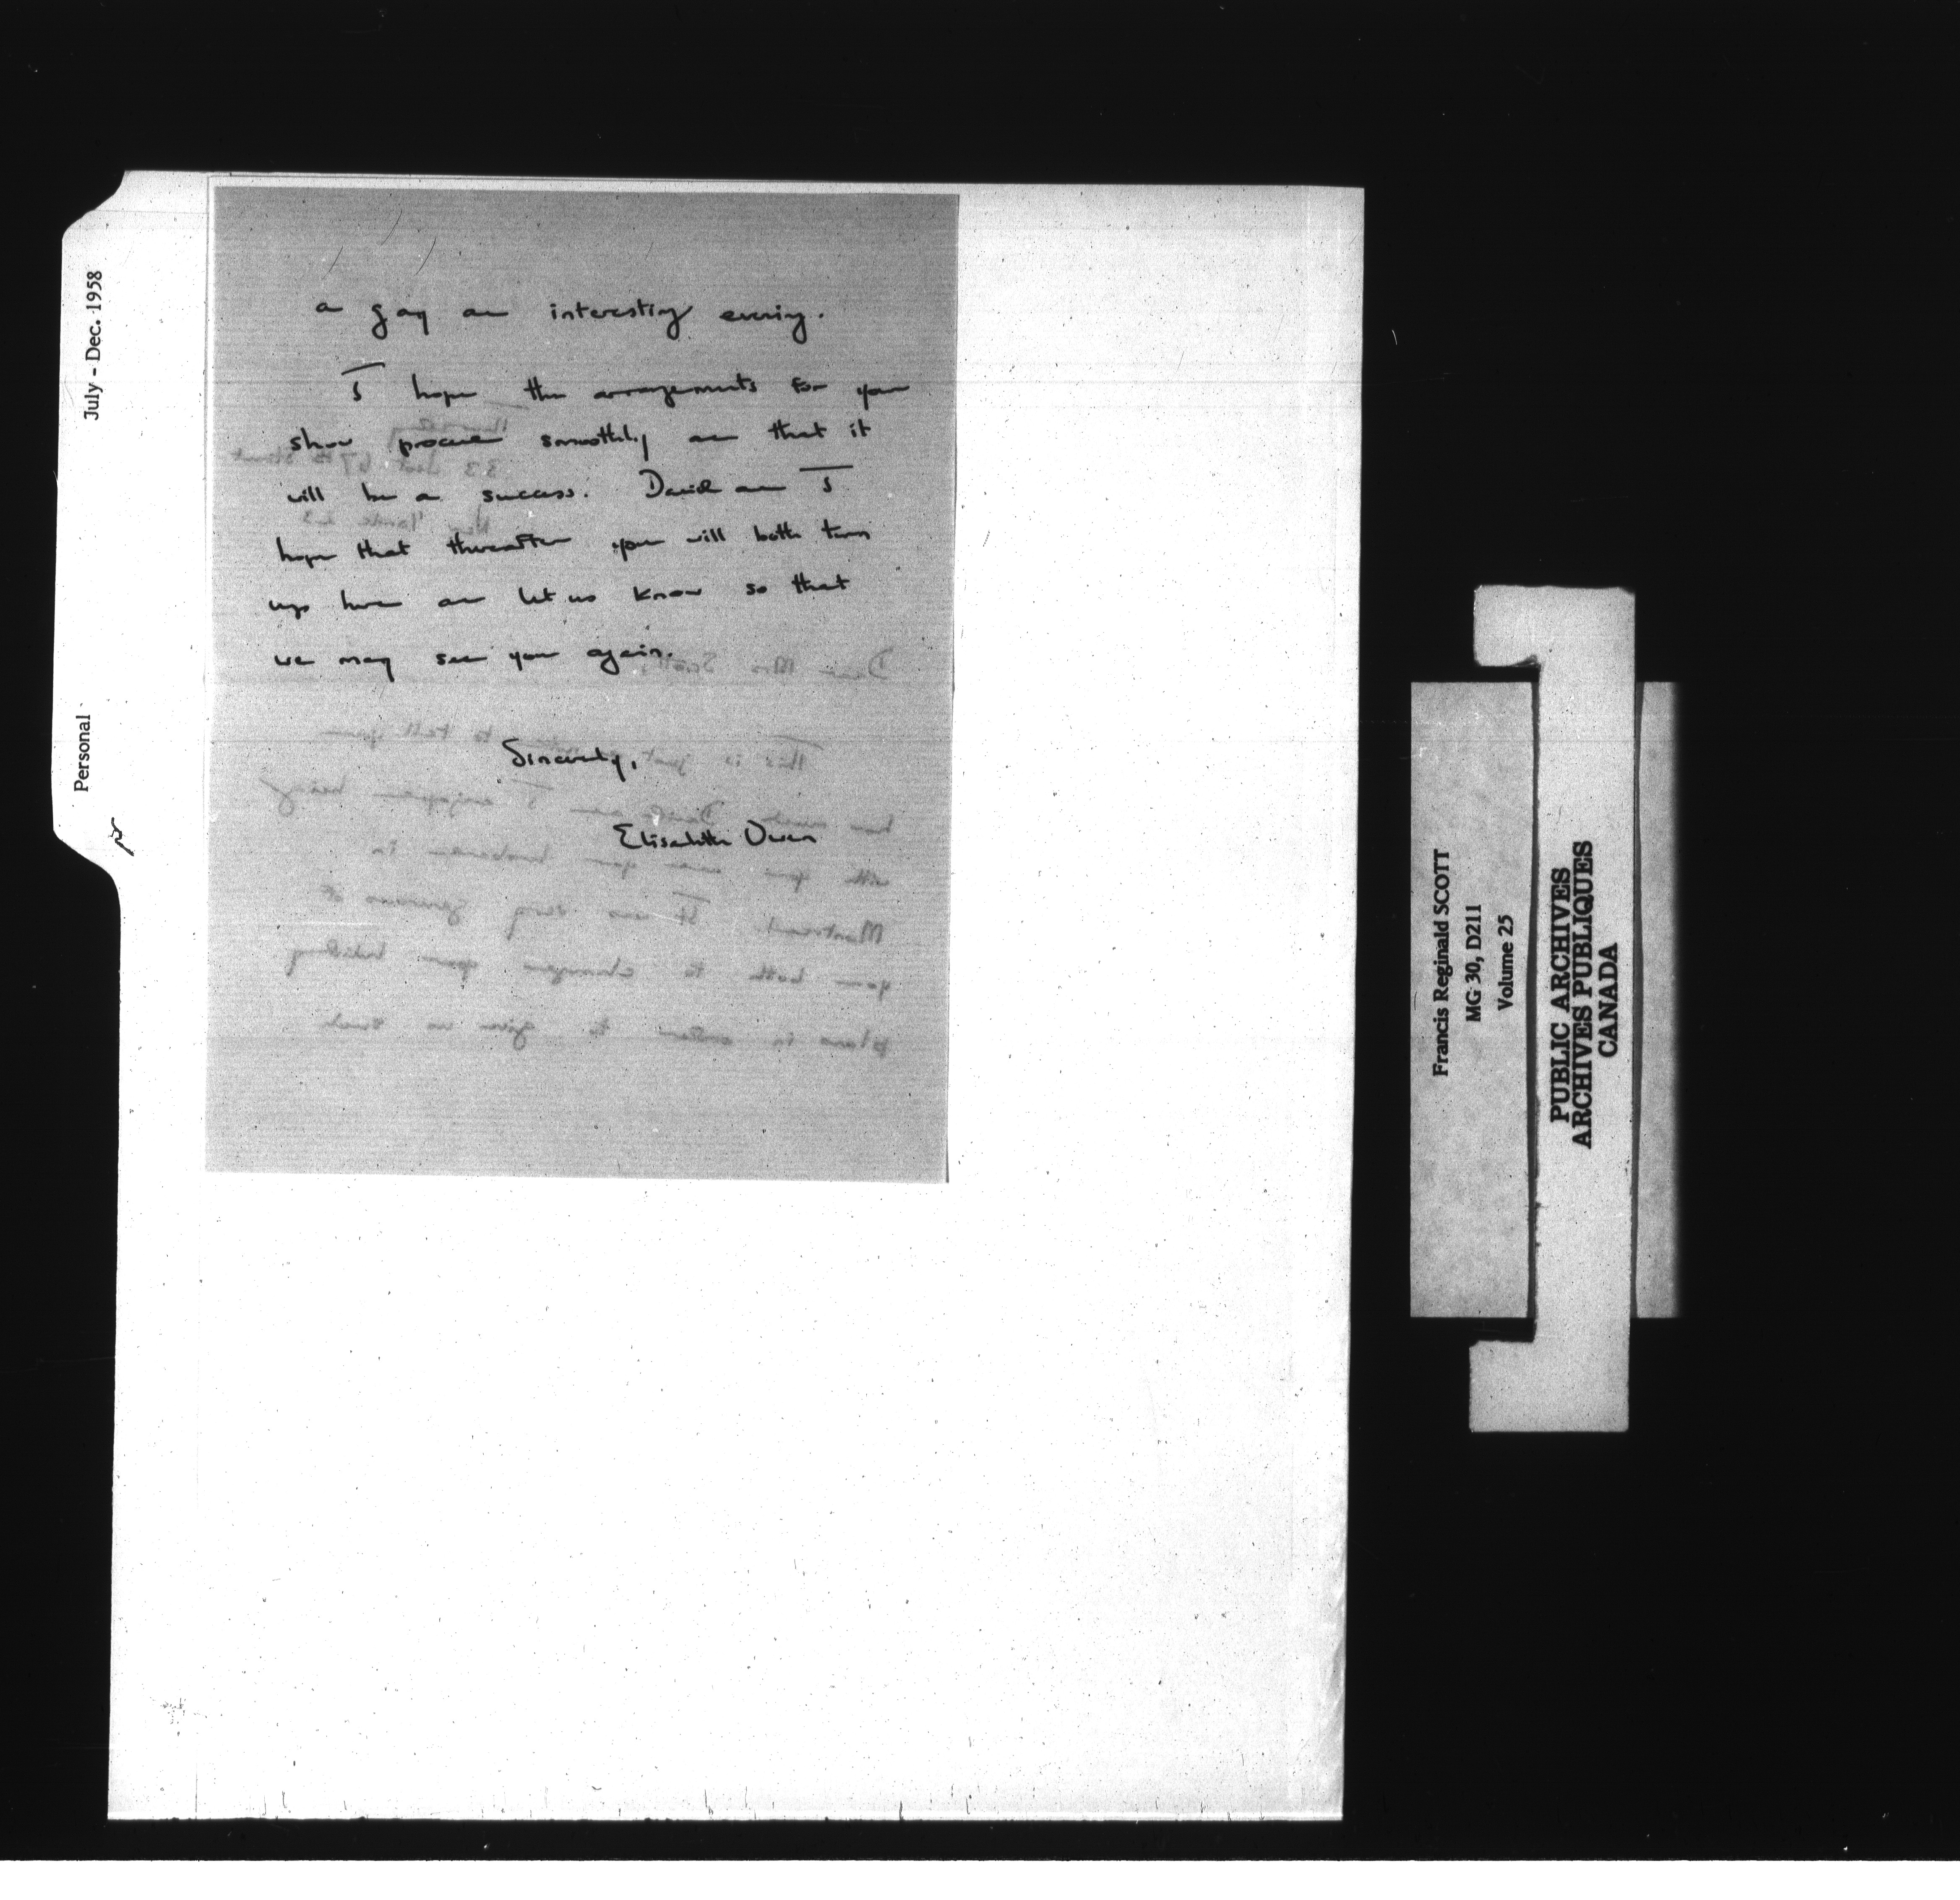 July - Dec. 1958
Personal
a gay and interesting evening.
I hope the arrangements for your
show proceed smoothly and that it
will be a success. David and I
hope that thereafter you will both turn
up here and let us know so that
we may see you again.
Sincerely,
Elisabeth Owen
Francis Reginald SCOTT
MG 30, D211
Volume 25
PUBLIC ARCHIVES
ARCHIVES PUBLIQUES
CANADA